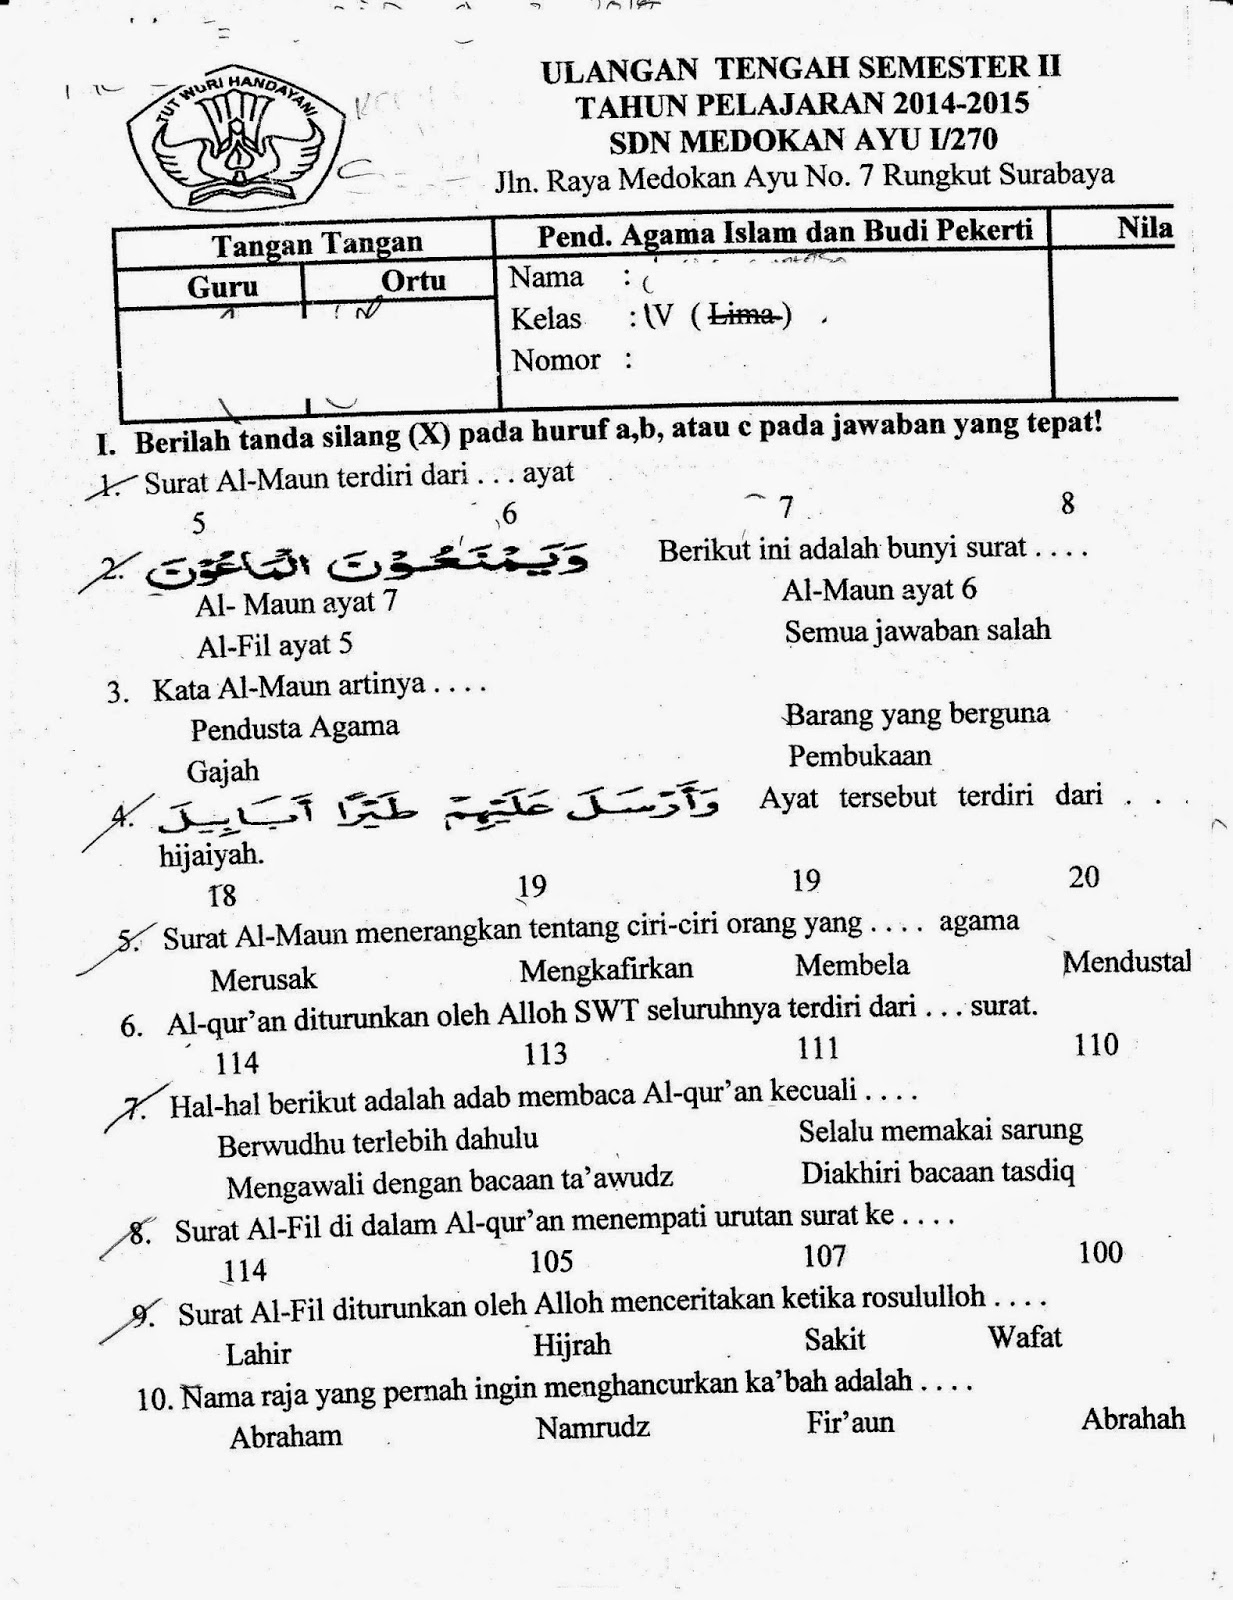 TUT WURI HANDAYANI
ULANGAN TENGAH SEMESTER II
TAHUN PELAJARAN 2014-2015
SDN MEDOKAN AYU I/270
Jln. Raya Medokan Ayu No. 7 Rungkut Surabaya
Tangan Tangan Pend. Agama Islam dan Budi Pekerti Nila
Guru Ortu Nama : (
Kelas : IV ( Lima )
Nomor :
I. Berilah tanda silang (X) pada huruf a,b, atau c pada jawaban yang tepat!
1. Surat Al-Maun terdiri dari . . . ayat
5 6 7 8
2. وَيَمْنَعُوْنَ الْمَاعُوْنَ Berikut ini adalah bunyi surat . . . .
Al- Maun ayat 7 Al-Maun ayat 6
Al-Fil ayat 5 Semua jawaban salah
3. Kata Al-Maun artinya . . . .
Pendusta Agama Barang yang berguna
Gajah Pembukaan
4. وَأَرْسَلَ عَلَيْهِمْ طَيْرًا أَبَابِيلَ Ayat tersebut terdiri dari . . .
hijaiyah.
18 19 19 20
5. Surat Al-Maun menerangkan tentang ciri-ciri orang yang . . . . agama
Merusak Mengkafirkan Membela Mendustal
6. Al-qur'an diturunkan oleh Alloh SWT seluruhnya terdiri dari . . . surat.
114 113 111 110
7. Hal-hal berikut adalah adab membaca Al-qur'an kecuali . . . .
Berwudhu terlebih dahulu Selalu memakai sarung
Mengawali dengan bacaan ta'awudz Diakhiri bacaan tasdiq
8. Surat Al-Fil di dalam Al-qur'an menempati urutan surat ke . . . .
114 105 107 100
9. Surat Al-Fil diturunkan oleh Alloh menceritakan ketika rosululloh . . . .
Lahir Hijrah Sakit Wafat
10. Nama raja yang pernah ingin menghancurkan ka'bah adalah . . . .
Abraham Namrudz Fir'aun Abrahah